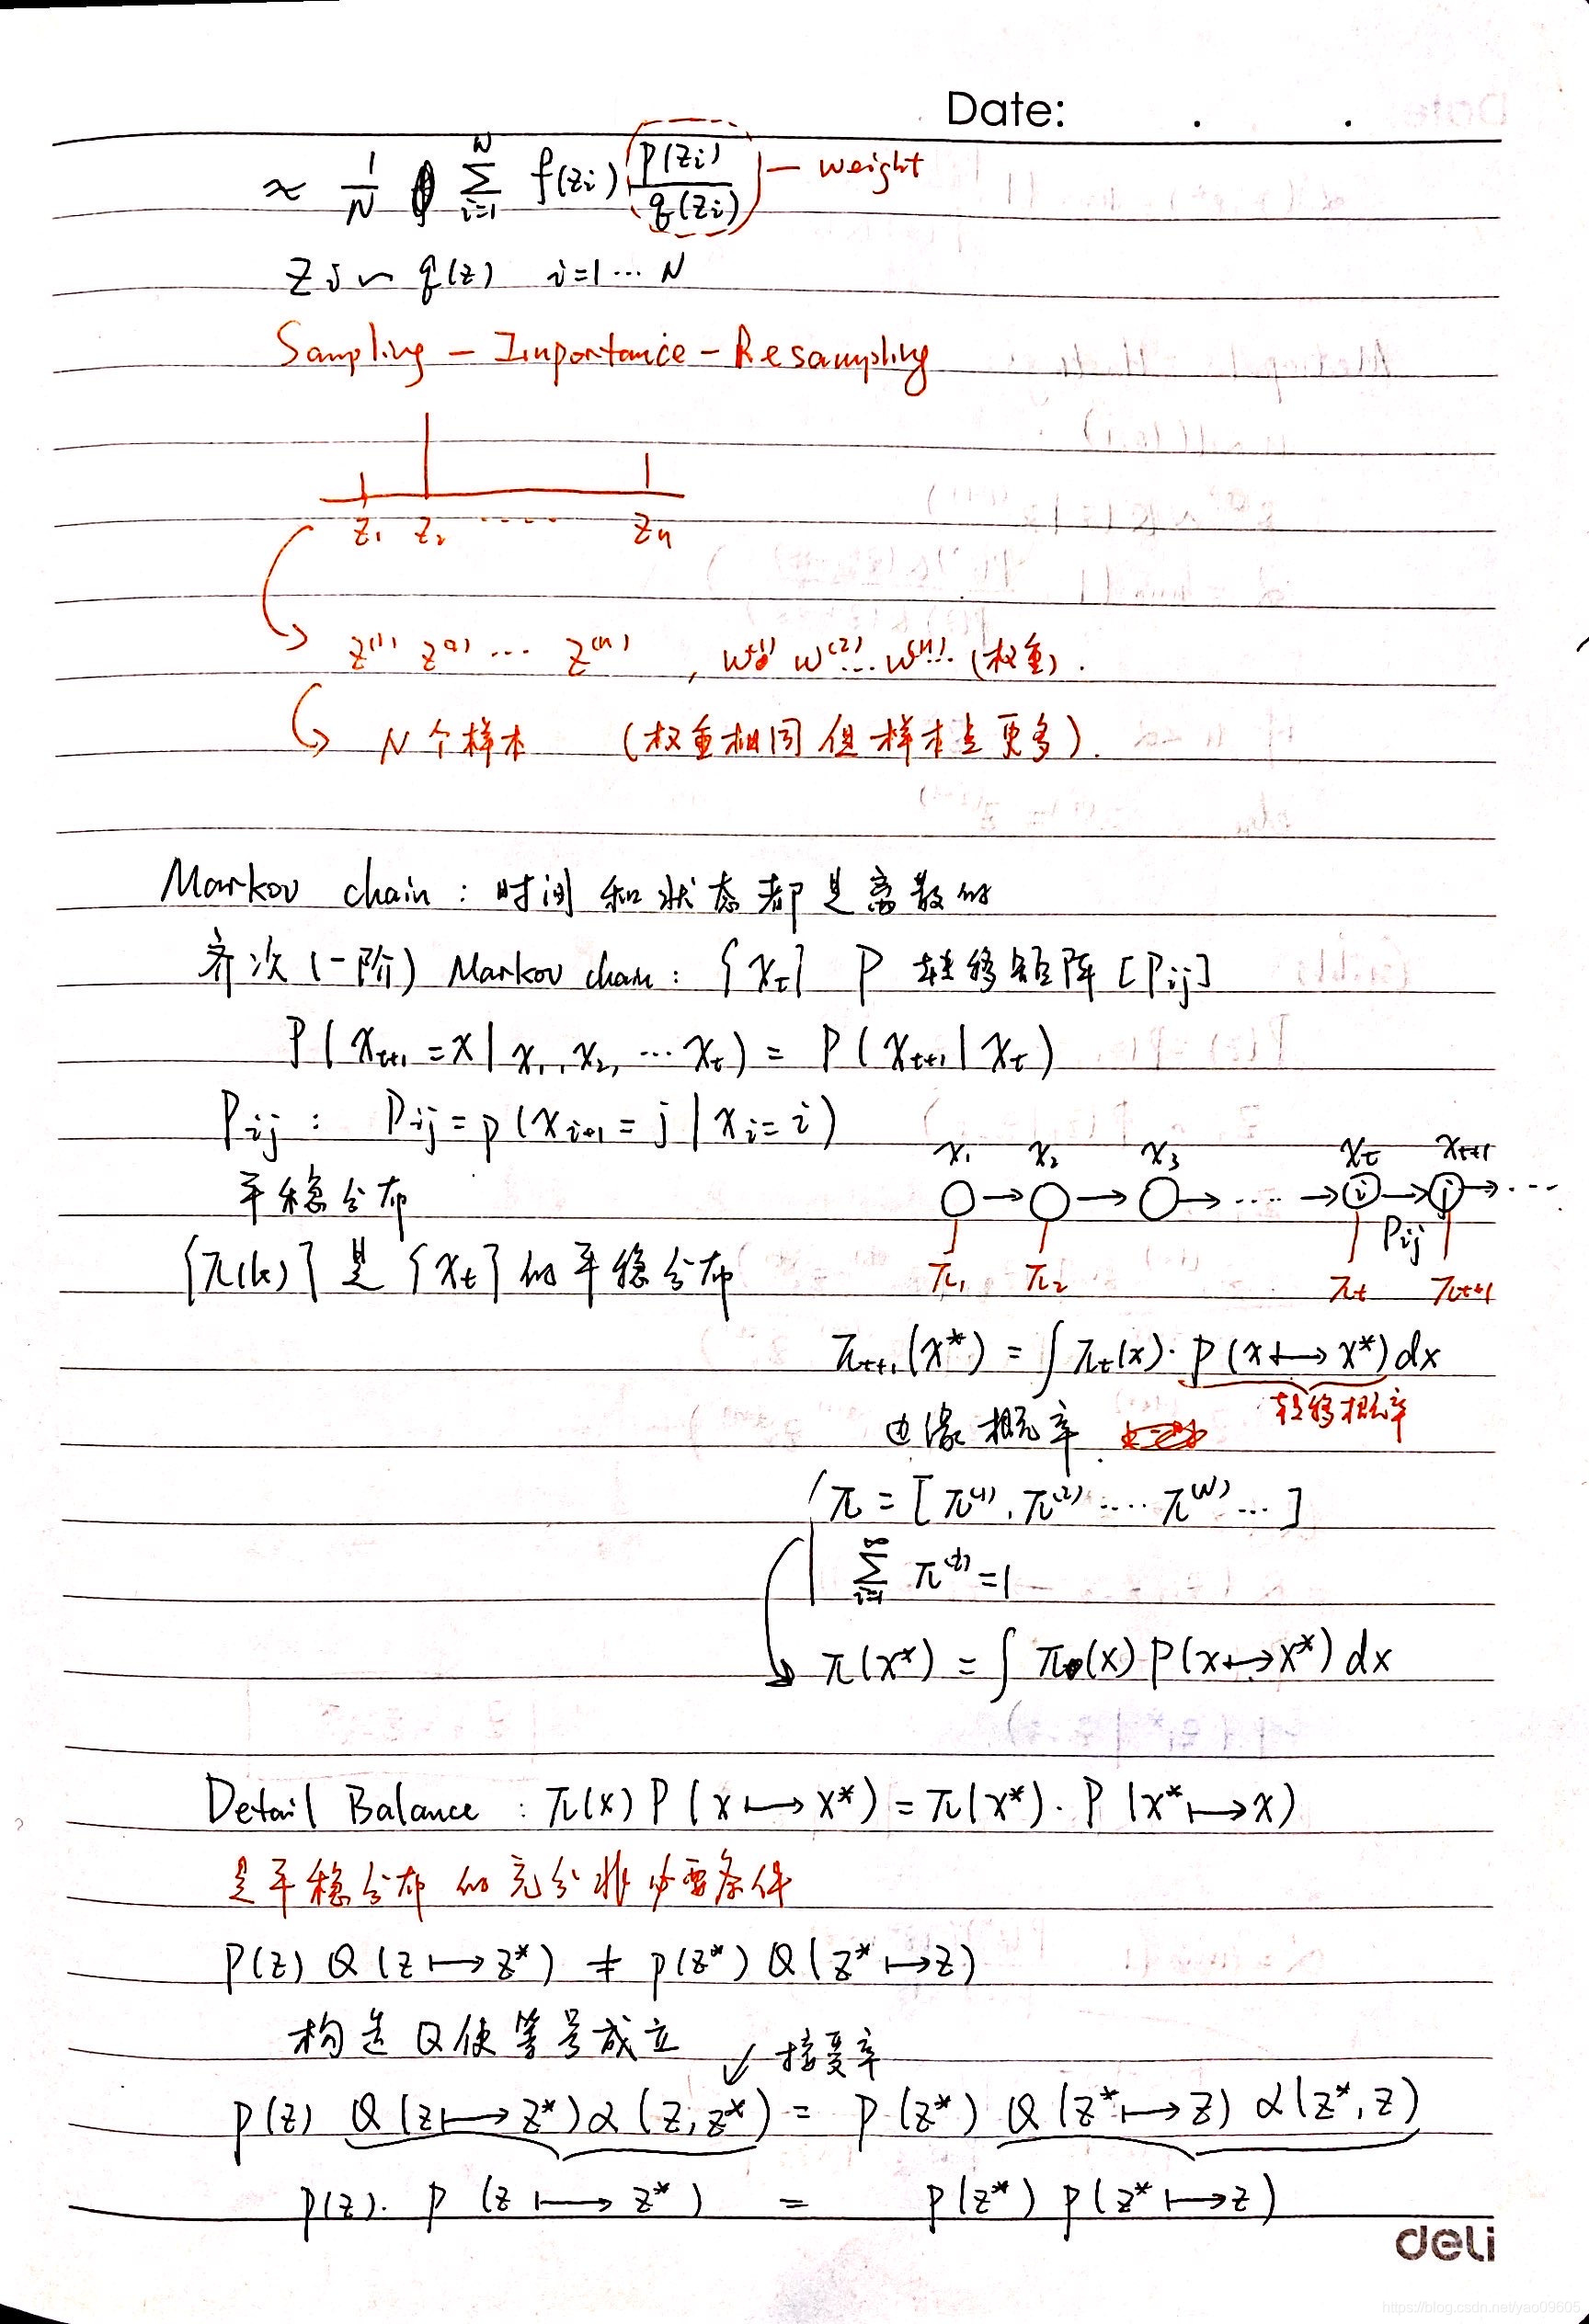 Date: . .
≈ 1/N ∑_{i=1}^{N} f(z_i) p(z_i)/q(z_i) — weight
z_i ~ q(z) i=1 ⋯ N
Sampling - Importance - Resampling
z_1 z_2 ⋯⋯ z_n
z^{(1)} z^{(2)} ⋯ z^{(n)} , w^{(1)} w^{(2)} ⋯ w^{(n)} ⋯ (权重).
N个样本 (权重相同但样本点更多).
Markov chain : 时间和状态都是离散的
齐次(一阶) Markov chain : {x_t} P 转移矩阵 [P_{ij}]
P(x_{t+1} = x | x_1, x_2, ⋯ x_t) = P(x_{t+1} | x_t)
P_{ij} : P_{ij} = p(x_{i+1} = j | x_i = i)
x_1 x_2 x_3 x_t x_{t+1}
平稳分布
→ → → ⋯⋯ → i → j → ⋯
P_{ij}
{π(k)} 是 {x_t} 的平稳分布
π_1 π_2 π_t π_{t+1}
π_{t+1}(x*) = ∫ π_t(x) · P(x ↦ x*) dx
转移概率
边缘概率.
π = [π^{(1)}, π^{(2)} ⋯⋯ π^{(N)} ⋯]
∑_{i=1}^{∞} π^{(i)} = 1
π(x*) = ∫ π(x) P(x ↦ x*) dx
Detail Balance : π(x) P(x ↦ x*) = π(x*) · P(x* ↦ x)
是平稳分布的充分非必要条件
P(z) Q(z ↦ z*) ≠ p(z*) Q(z* ↦ z)
构造Q使等号成立
↙ 接受率
p(z) Q(z ↦ z*) α(z, z*) = P(z*) Q(z* ↦ z) α(z*, z)
p(z). P(z ↦ z*) = P(z*) P(z* ↦ z)
deli
https://blog.csdn.net/yao09605